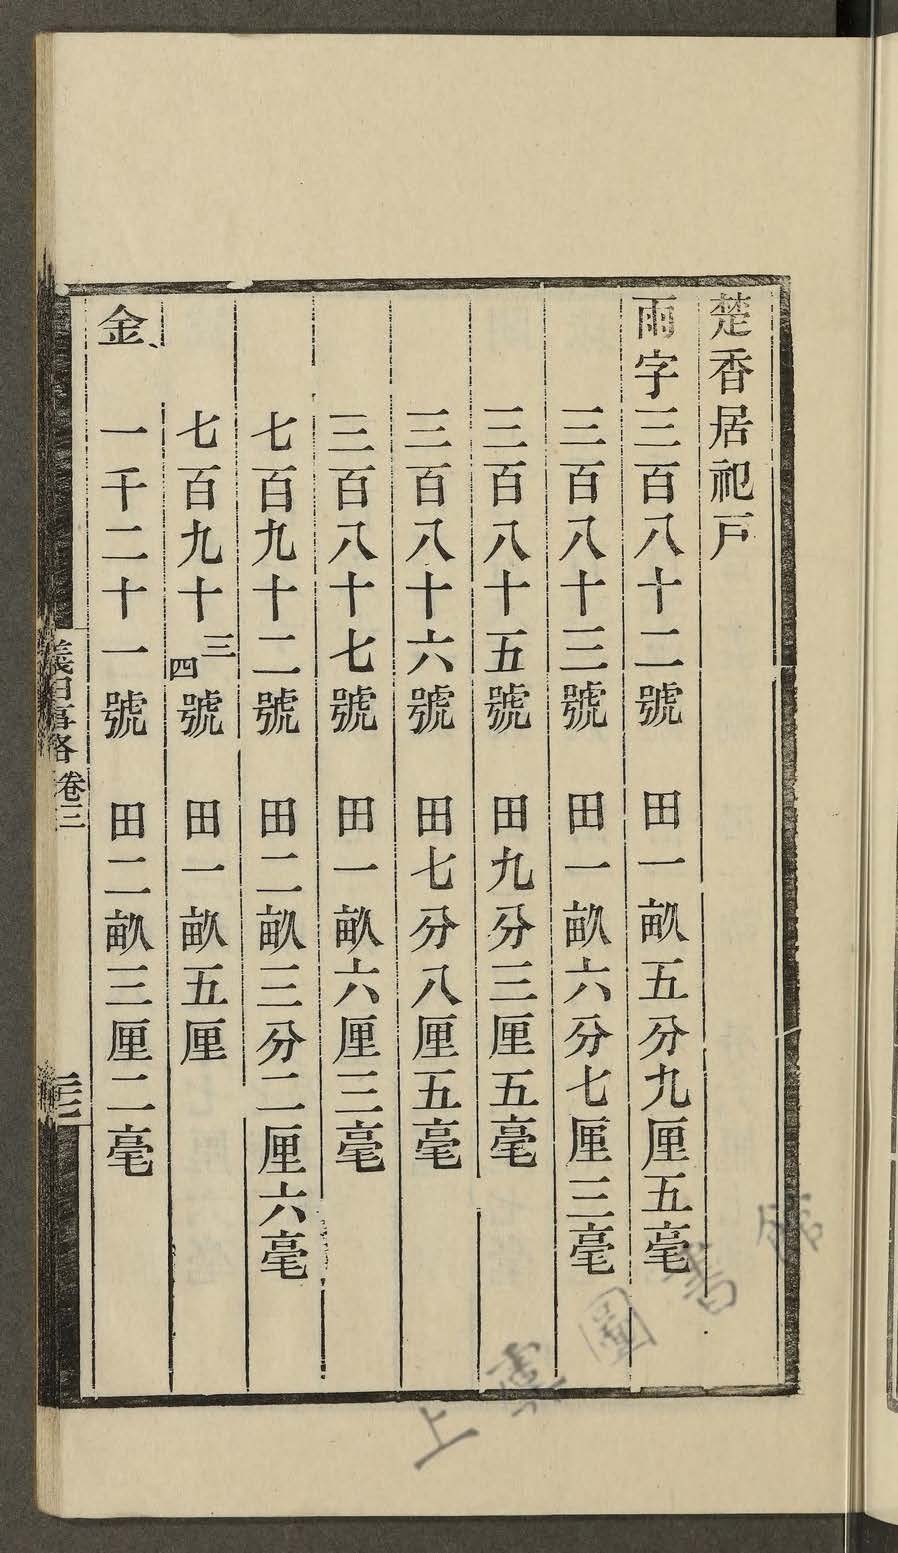 楚香居祀戶
雨字三百八十二號　田一畝五分九厘五毫
三百八十三號　田一畝六分七厘三毫
三百八十五號　田九分三厘五毫
三百八十六號　田七分八厘五毫
三百八十七號　田一畝六厘三毫
七百九十二號　田二畝三分二厘六毫
七百九十三四號　田一畝五厘
金　一千二十一號　田二畝三厘二毫
義田事略 卷三
上虞圖書館